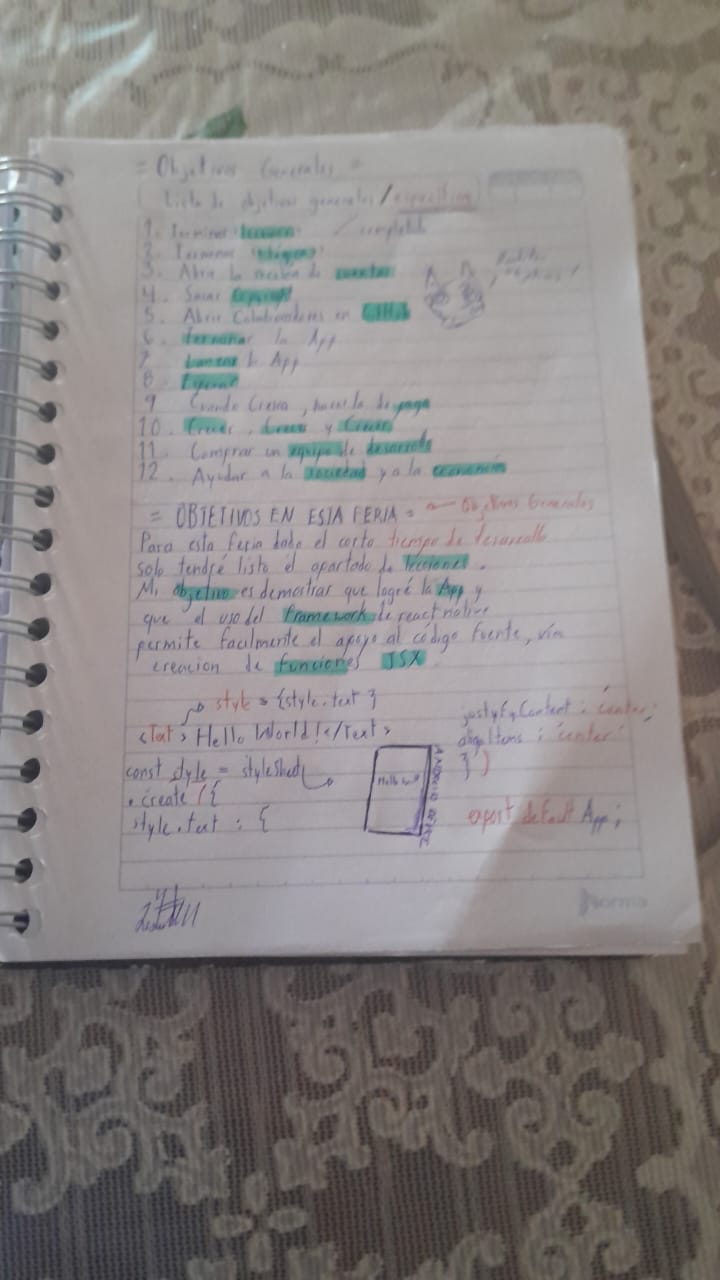 = Objetivos Generales =
Lista de objetivos generales / especificos
1. Terminar
2. Terminar
3. Abrir la de cuentas
4. Sacar Copyright
5. Abrir Colaboradores en GitHub
6. Terminar la App
7. Lanzar la App
8. Esperar
9 Cuando Crezca, hacerla de paga
10. Crecer, Crecer y Crecer
11. Comprar un equipo de desarrollo
12. Ayudar a la sociedad y a la economía
= OBJETIVOS EN ESTA FERIA = Objetivos Generales
Para esta feria dado el corto tiempo de desarrollo
solo tendré listo el apartado de lecciones.
Mi objetivo es demostrar que logré la App y
que el uso del framework de react native
permite facilmente el apoyo al código fuente, vía
creacion de funciones JSX.
style = {style.text}
<Text> Hello World!</Text>
const style = styleShed
.create ({
style.text : {
Hello
justyfyContent : 'center;
aligItems : 'center'
})
export default App;
Norma